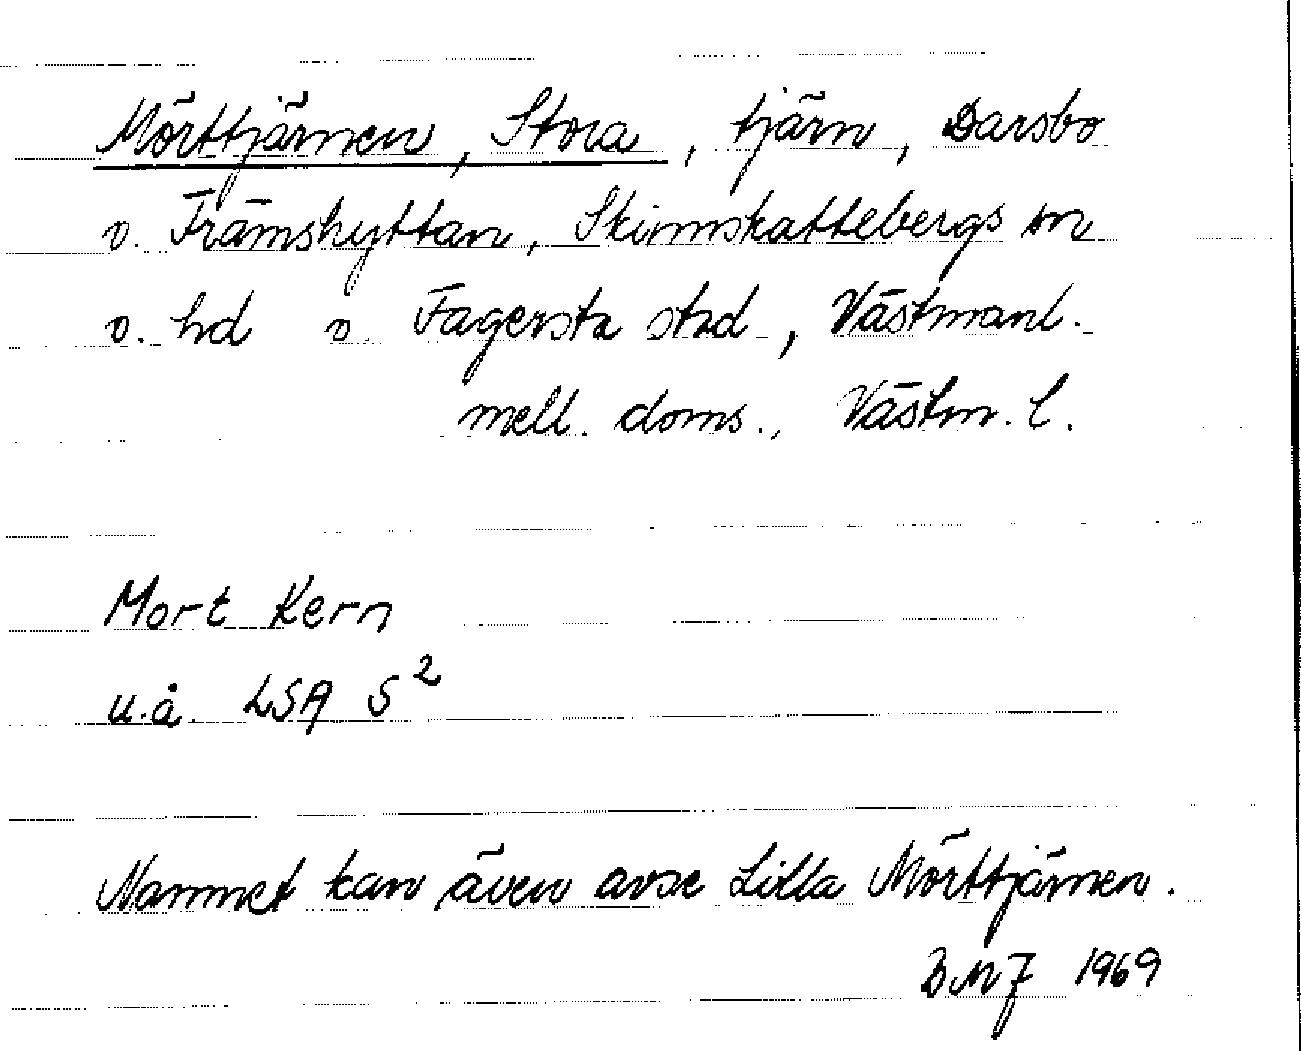 Mörttjärnen, Stora, tjärn, Darsbo
o. Främshyttan, Skinnskattebergs sn
o. hd o. Fagersta stad, Västmanl.
mell. doms., Västm. l.
Mort Kern
u.å. LSA S²
Namnet kan även avse Lilla Mörttjärnen.
BMJ 1969